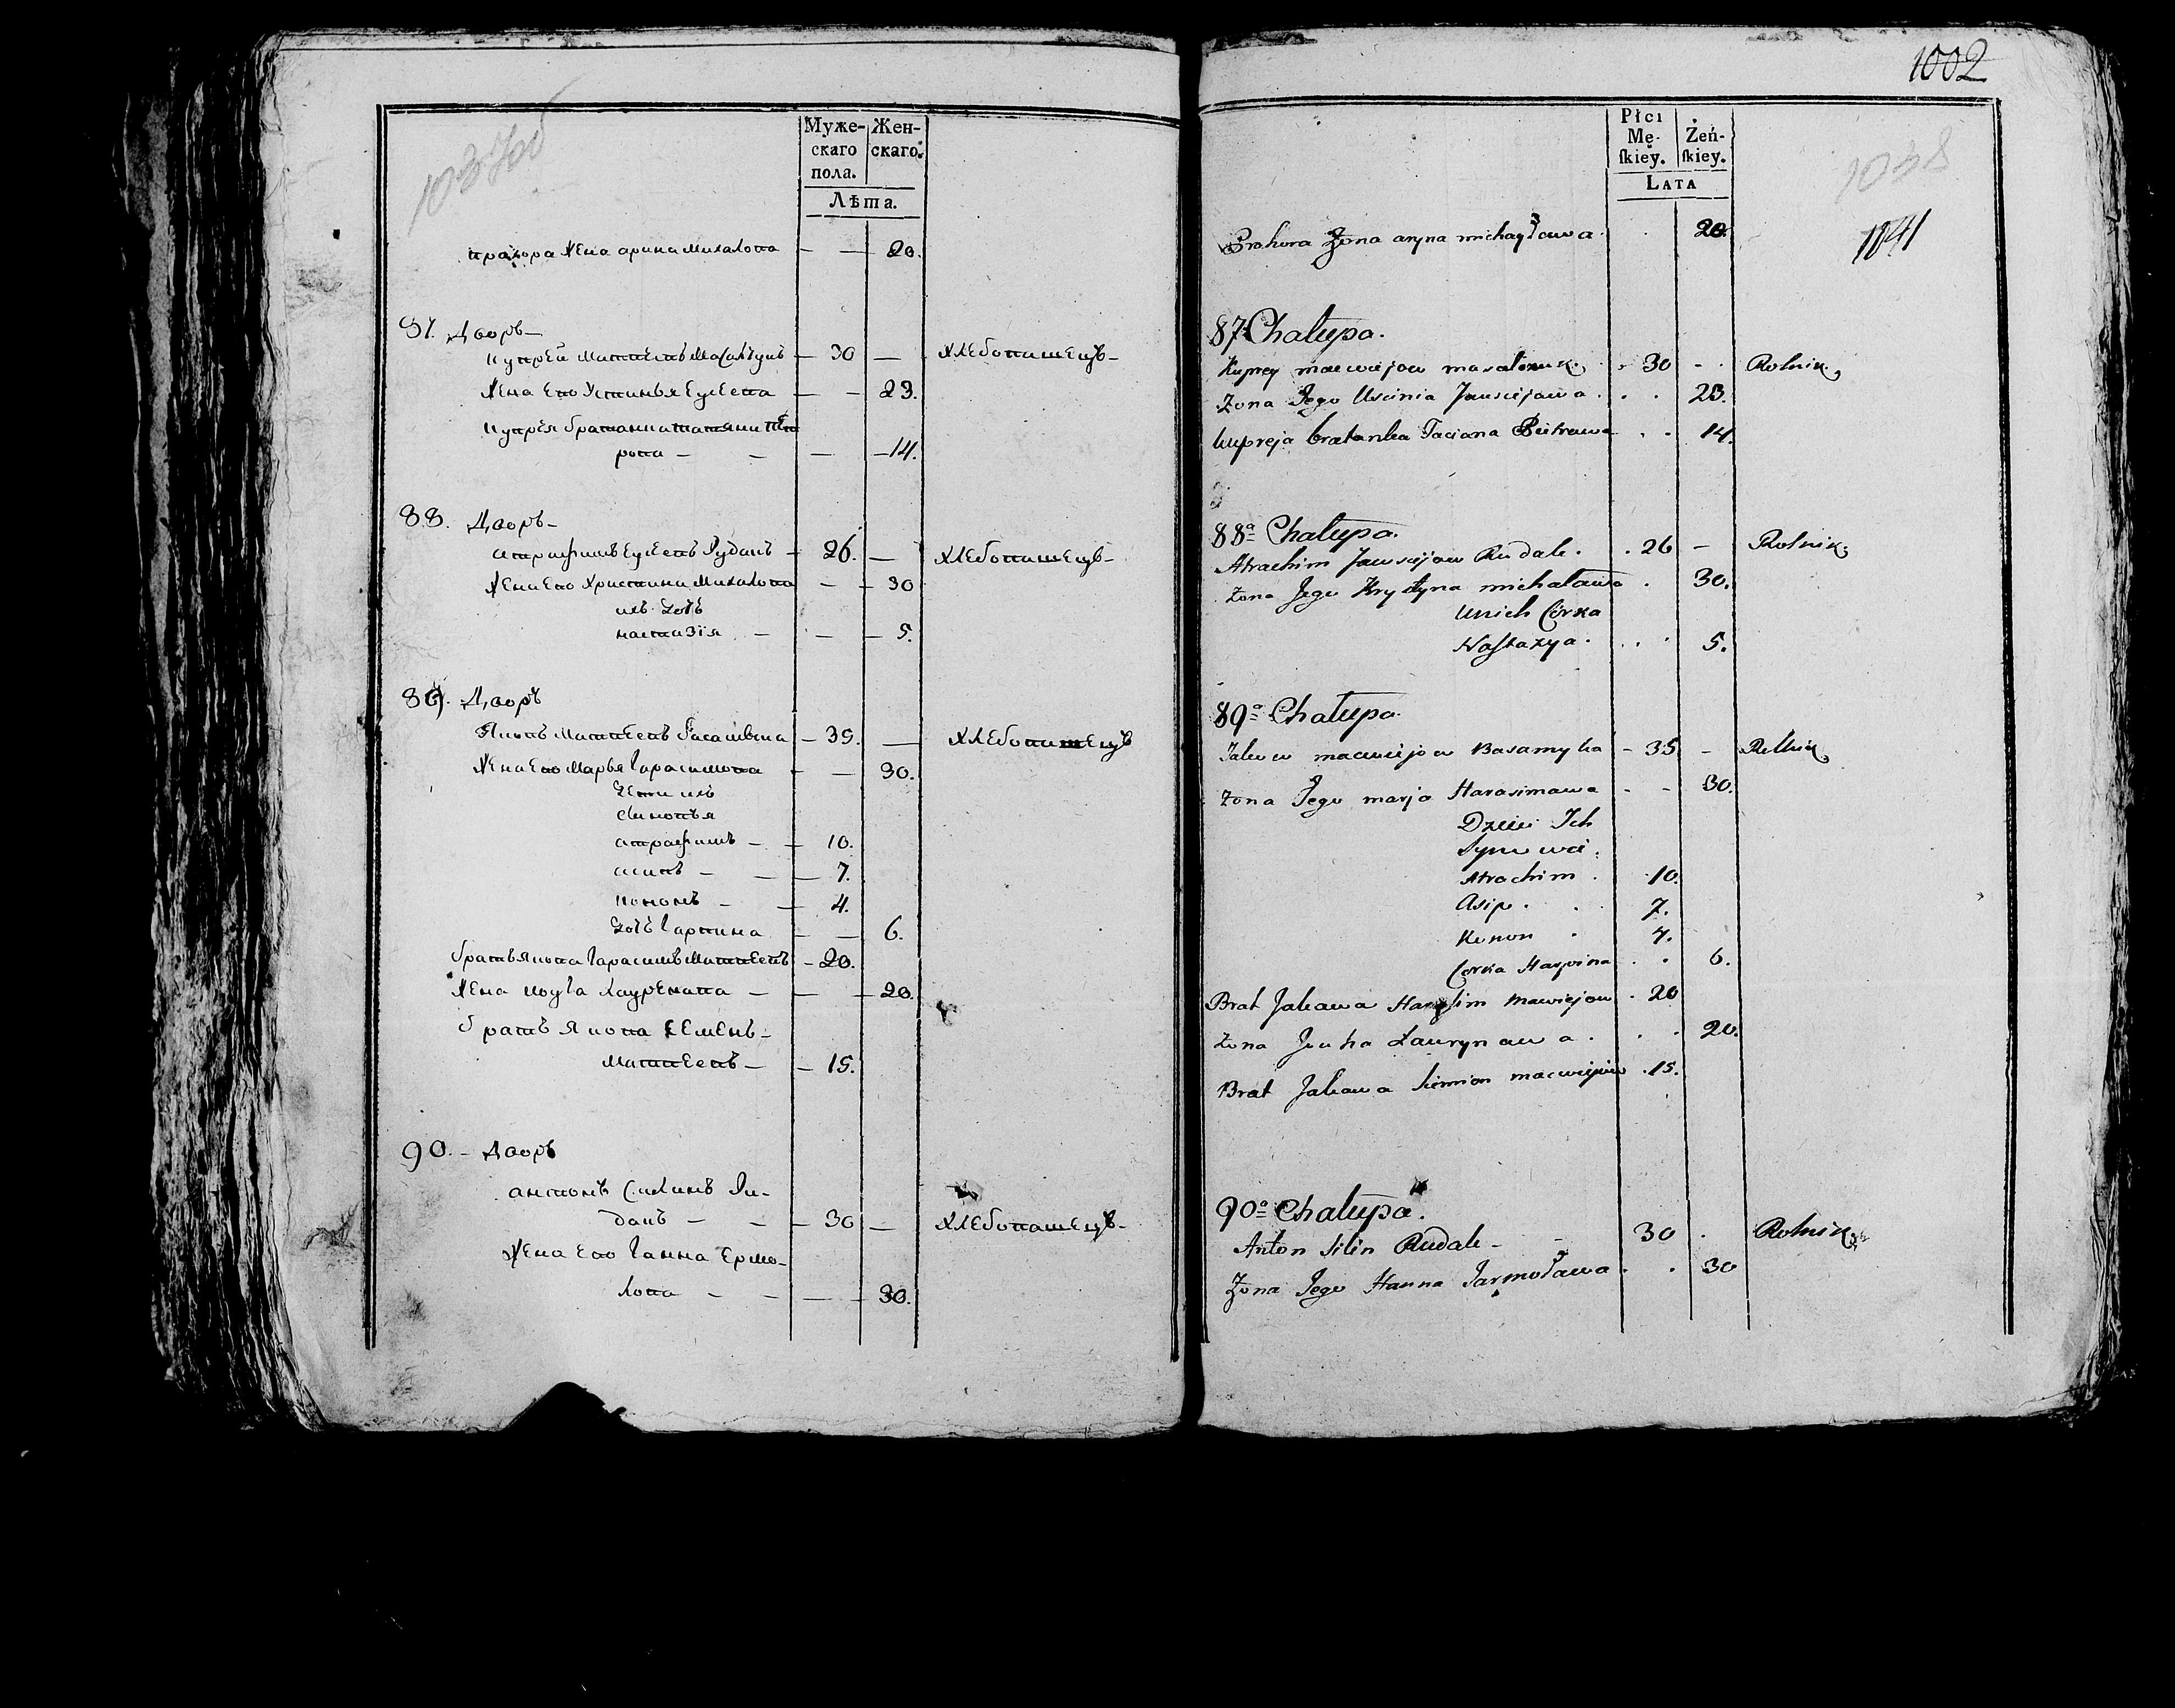 Муже-
скаго
пола.
Жен-
скаго.
Лѣта.
прахора Жена арина Михалова — — 20.
87. Дворъ —
Купрей Матвеевъ Масалъ — 30 — Хлебопашецъ —
Жена Его Устинья Евсеева — — 23.
Купрея братанка татяна Пет
рова — — — — 14.
88. Дворъ —
Атрахимъ Евсеевъ Рудакъ — 26. — Хлебопашецъ —
Жена Его Христина Михалова — — 30
ихъ дочь
настазія — — — 5.
89. Дворъ
Яковъ Матвеевъ Басамыка — 35. — Хлебопашецъ
Жена Его Марья Гарасимова — — 30.
Дети ихъ
Синовья
атрахимъ — — 10.
асипъ — — 7.
кононъ — — 4.
дочь Гарпина — — 6.
братъ Якова Гарасимъ Матвеевъ — 20.
Жена Лауренава — — — 20.
братъ Якова Семенъ —
Матвеевъ — — 15.
90. — Дворъ
антонъ Силинъ Ру-
дакъ — — — 30 — Хлебопашецъ —
Жена Его Ганна Ермо-
лова — — — — 30.
1002
Płci
Mę-
ſkiey.
Żeń-
ſkiey.
LATA
1038
1041
Prohora Żona aryna michayłowa . 20.
87 Chałupa.
Kuprey maciejow . 30 - . Rolnik.
Żona Jego Uscinia Jauściejowa . . . 23.
Kupreja bratanka Taciana Pietrowa . . 14.
88ª Chałupa.
Atrachim Jauściejow Rudak . . 26 — Rolnik.
Żona Jego Krystyna michałowa . 30.
Unich Córka
Naſtazya . . . 5.
89ª Chałupa.
Jakow maciejow Basamyka - 35 - Rolnik
Żona Jego marja Harasimowa - - 30.
Dzieci Ich
Synowie.
Atrachim . 10.
Asip . . 7.
Konon . 4.
Corka Harpina . . 6.
Brat Jakowa Harasim maciejow . 20
Żona Jouha Łaurynowa . . . 20.
Brat Jakowa Siemion maciejow . 15.
90ª Chałupa.
Anton Silin Rudak - - 30 . Rolnik
Żona Jego Hanna Jarmołowa . . 30